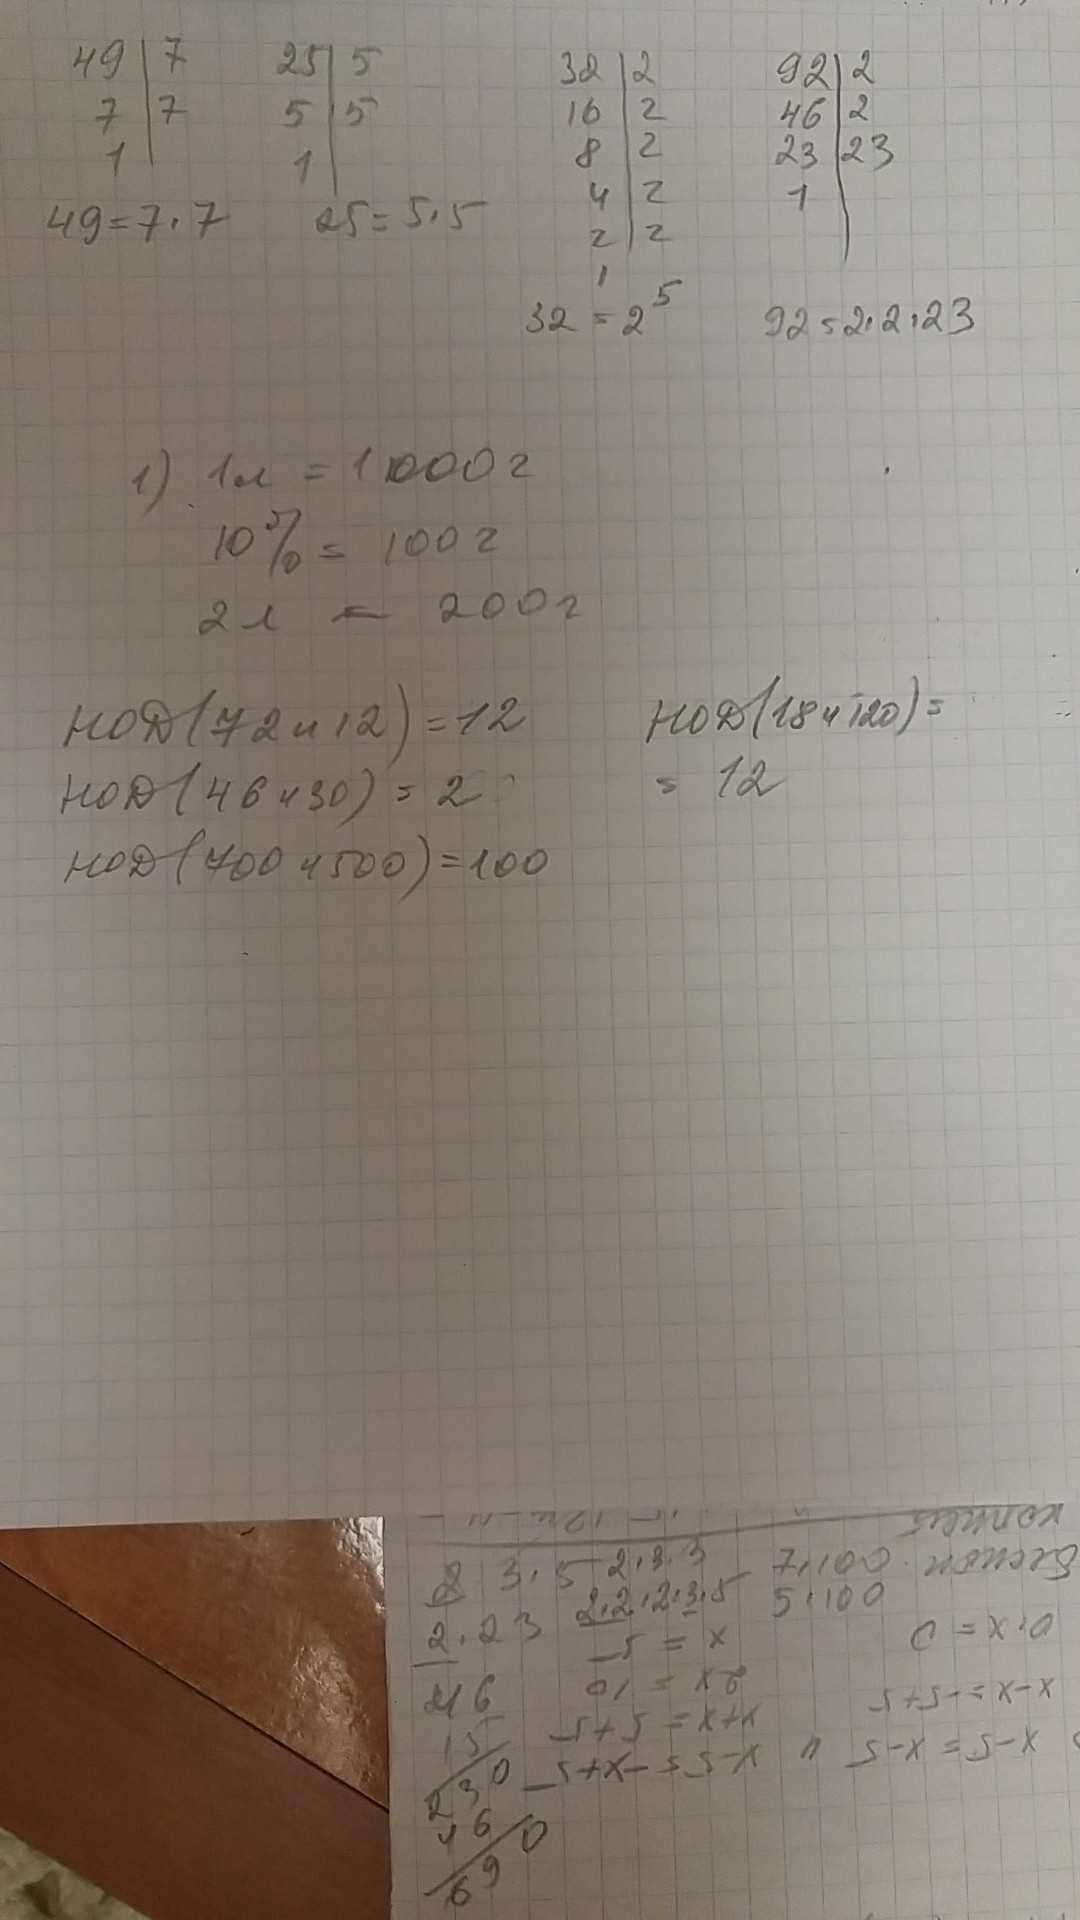 49 | 7
7 | 7
1
49=7·7
25 | 5
5 | 5
1
25=5·5
32 | 2
16 | 2
8 | 2
4 | 2
2 | 2
1
32=2⁵
92 | 2
46 | 2
23 | 23
1
92=2·2·23
1) 1л = 1000г
10% = 100г
2л = 200г
НОД(72 и 12)=12
НОД(46 и 30)=2
НОД(700 и 500)=100
НОД(18 и 120)=
= 12
2·3·5
2·23
46
15
230
46
690
2·3·3
2·2·2·3·5
7·100
5·100
x-5=-x+5
x+x=5+5
2x=10
x=5
и
x-5=x-5
x-x=-5+5
0·x=0